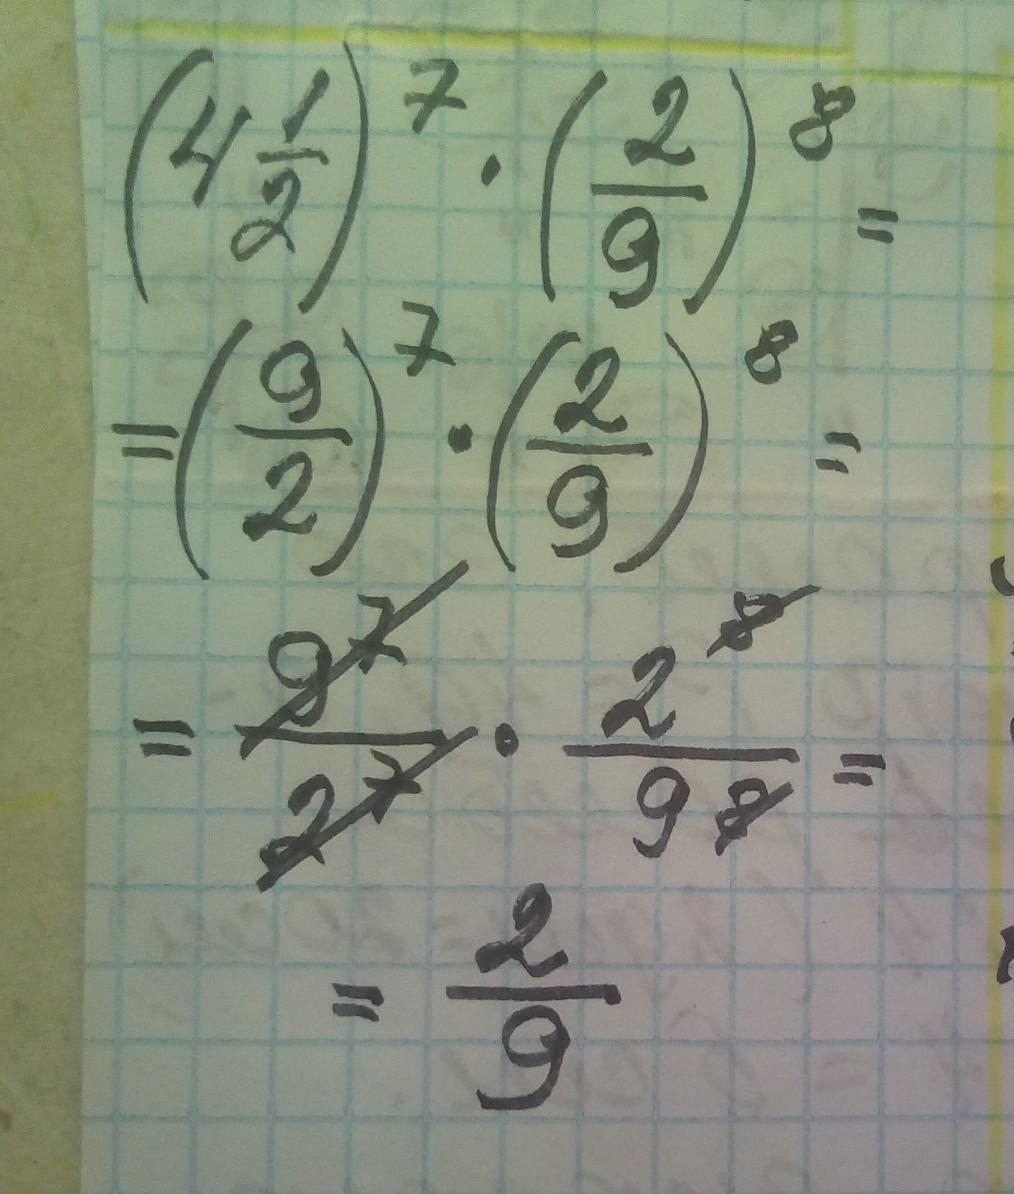 (4 1/2)^7 · (2/9)^8 =
= (9/2)^7 · (2/9)^8 =
= 9^7/2^7 · 2^8/9^8 =
= 2/9